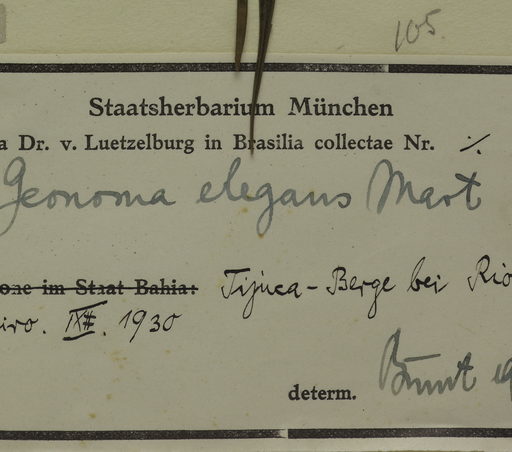 105.
Staatsherbarium München
a Dr. v. Luetzelburg in Brasilia collectae Nr. ⁒
Geonoma elegans Mart
one im Staat Bahia: Tijuca-Berge bei Rio
iro. 1930
determ. Burret